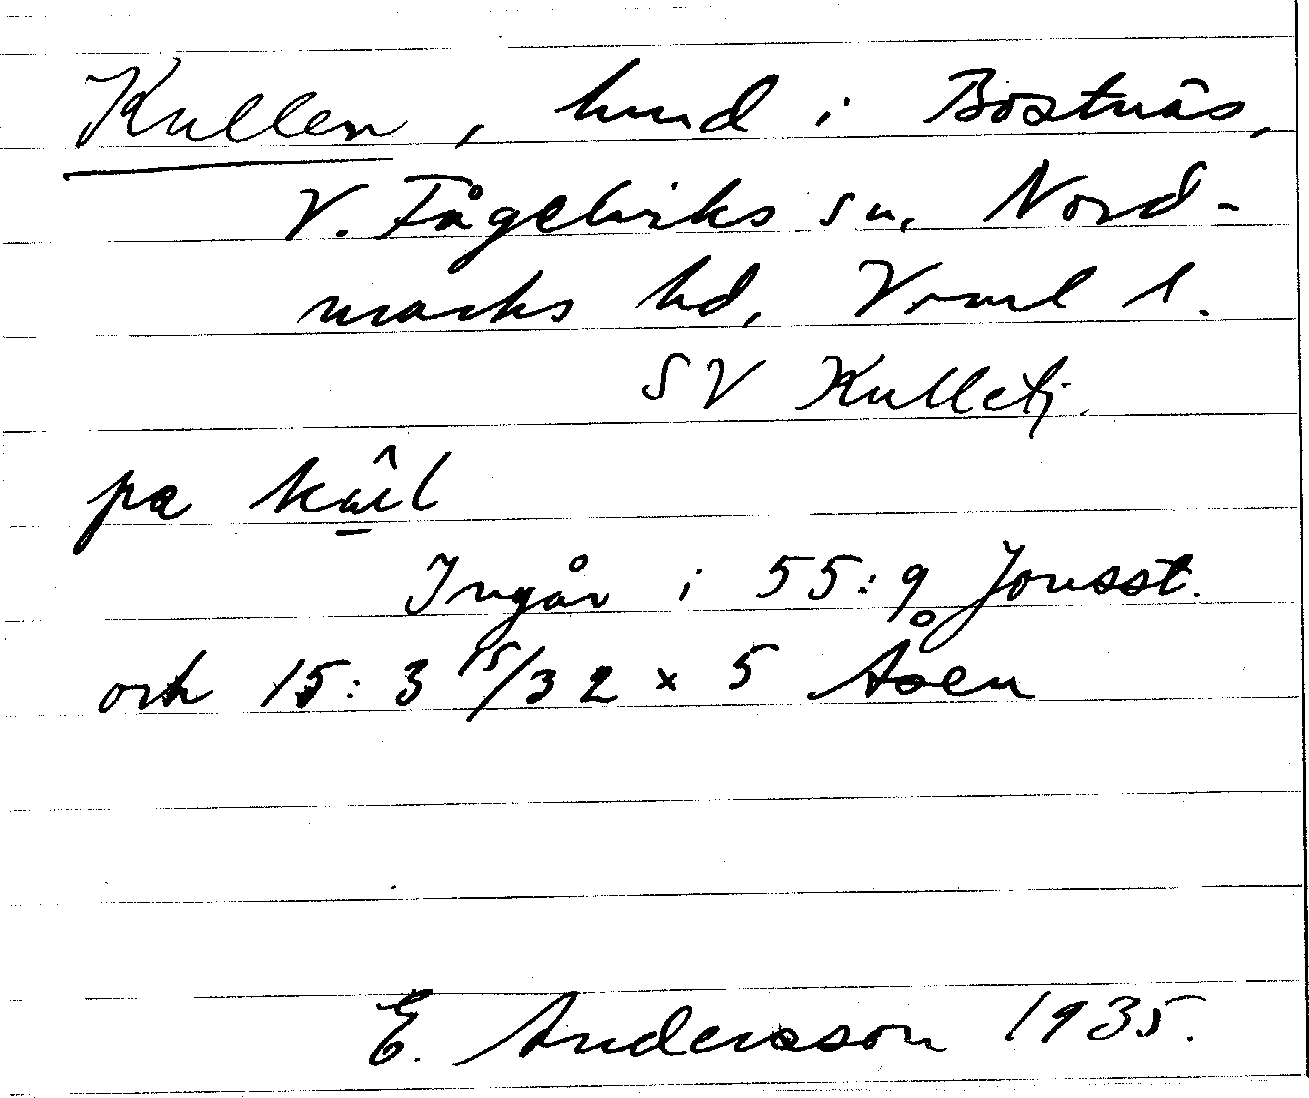 Kullen, hmd i Bostnäs,
V. Fågelviks sn, Nord-
marks hd, Vrml l.
SV Kulletj.
pa
Ingår i 55:9 Jonsst.
och 15: 3 15/32 x 5 Åsen
E. Andersson 1935.